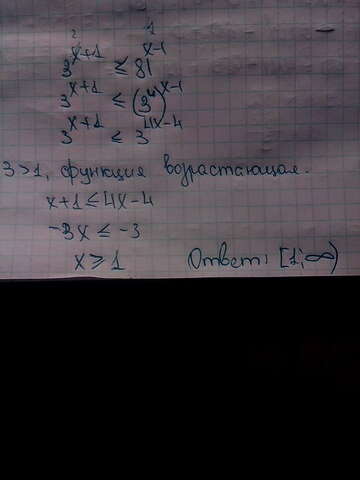 2 1
3^(x+1) ≤ 81^(x-1)
3^(x+1) ≤ (3^4)^(x-1)
3^(x+1) ≤ 3^(4x-4)
3>1, функция возрастающая.
x+1≤4x-4
-3x ≤ -3
x ≥ 1 Ответ: [1;∞)